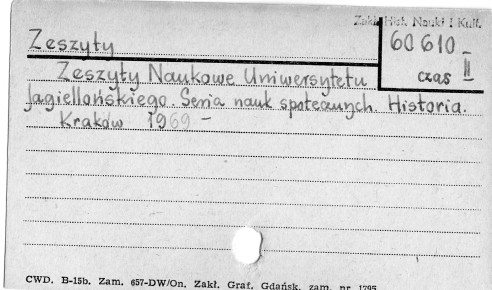 Zakł. Hist. Nauki i Kult.
Zeszyty
60610-
czas II
Zeszyty Naukowe Uniwersytetu
Jagiellońskiego. Seria nauk społecznych. Historia.
Kraków 1969 -
CWD. B-15b. Zam. 657-DW/On. Zakł. Graf. Gdańsk, zam. nr 1795